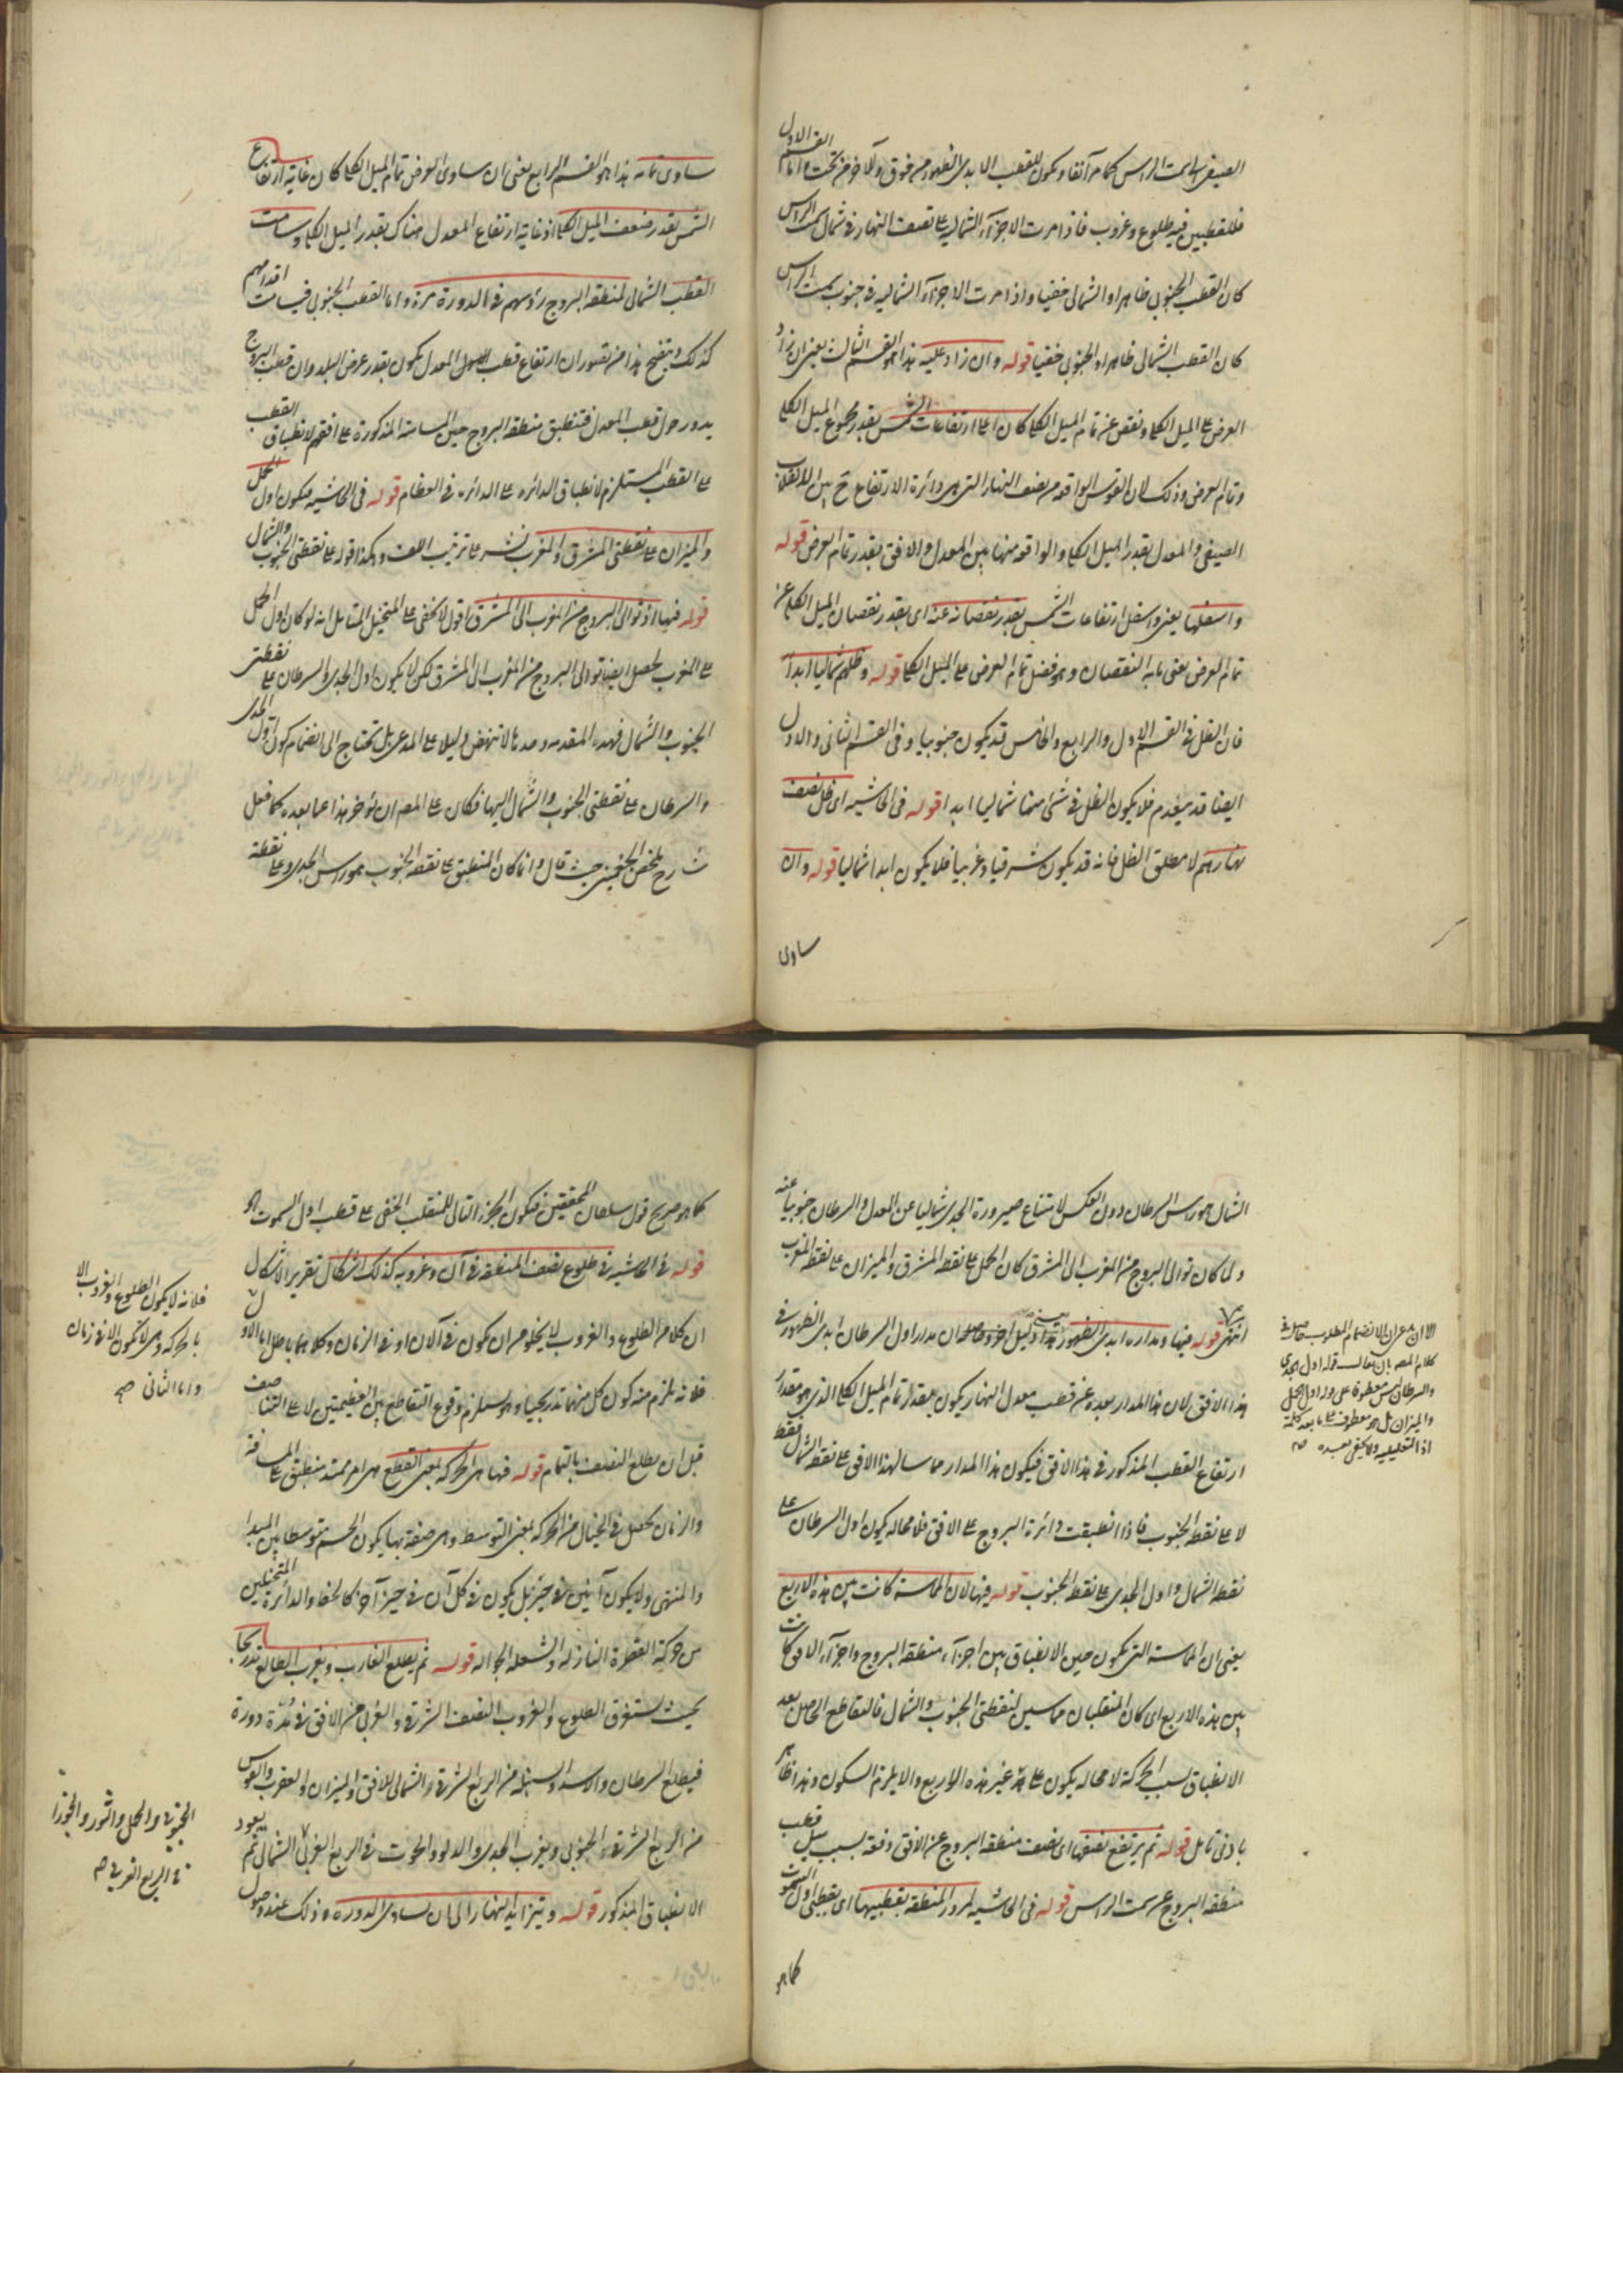 الصيفي لسمت الراس كما مر آنفا ويكون للقطب الابدي الظهور من فوق والآخر من تحت واما القسم الاول
فللقطبين فيه طلوع وغروب فاذا مرت الاجزآء الشمالية على نصف النهار في شمال سمت الراس
كان القطب الجنوبي ظاهرا والشمالي خفيا واذا مرت الاجزآء الشماليه في جنوب سمت الراس
كان القطب الشمالي ظاهرا والجنوبي خفيا قوله وان زاد عليه هذا هو القسم الثالث يعني ان زاد
العرض على الميل الكلي ونقص عن تمام الميل الكلي كان اعلى ارتفاعات الشمس بقدر مجموع الميل الكلي
وتمام العرض وذلك لان القوس الواقعه من نصف النهار التي هي دائرة الارتفاع ح بين الانقلاب
الصيفي والمعدل بقدر الميل الكلي والواقعه منها بين المعدل والافق بقدر تمام العرض قوله
واسفلها يعني واسفل ارتفاعات الشمس بقدر نقصانه عنه اى بقدر نقصان الميل الكلي عن
تمام العرض يعني ما به النقصان وهو فضل تمام العرض على الميل الكلي قوله وظلهم شماليا ابدا
فان الظل في القسم الاول والرابع والخامس قد يكون جنوبيا وفي القسم الثاني والاول
ايضا قد ينعدم فلا يكون الظل في شئ منها شماليا ابدا قوله في الحاشيه اى ظل نصف
نهارهم لا مطلق الظل فانه قد يكون شرقيا وغربيا فلا يكون ابدا شماليا قوله وان
ساوى
ساوى تمامه هذا هو القسم الرابع يعني ان ساوى العرض تمام الميل الكلي كان غاية ارتفاع
الشمس بقدر ضعف الميل الكلي اذ غاية ارتفاع المعدل هناك بقدر الميل الكلي وسامت
القطب الشمالي لمنطقه البروج رؤسهم في الدورة مرة واما القطب الجنوبي فيسامت اقدامهم
كذلك ويتضح هذا من تصور ان ارتفاع قطب المعدل يكون بقدر عرض البلد وان قطب البروج
يدور حول قطب المعدل فتنطبق منطقه البروج حين المسامتة المذكورة على افقهم لانطباق القطب
على القطب المستلزم لانطباق الدائره على الدائره في العظام قوله في الحاشيه فيكون اول الحمل
والميزان على نقطتي المشرق والمغرب نشر على ترتيب اللف وهكذا قوله على نقطتي الجنوب والشمال
قوله فيها اذ توالي البروج من المغرب الى المشرق اقول لا يخفى على المتخيل المتامل انه لو كان اول الحمل
على المغرب لحصل ايضا توالي البروج من المغرب الى المشرق لكن لا يكون اول الجدي والسرطان على نقطتي
الجنوب والشمال فهذه المقدمه وحدها لا تنهض دليلا على المدعى بل تحتاج الى انضمام كون اول الجدي
والسرطان على نقطتي الجنوب والشمال اليها فكان على المص ان يؤخر هذا عما بعده كما فعل
شارح ملخص الجغميني حيث قال وانما كان المنطبق على نقطه الجنوب هو راس الجدي وعلى نقطة
الشمال هو راس السرطان دون العكس لامتناع صيرورة الجدي شماليا عن المعدل والسرطان جنوبيا عنه
ولما كان توالي البروج من المغرب الى المشرق كان الحمل على نقطه المشرق والميزان على نقطه المغرب
انتهى قوله فيها ومداره ابدى الظهور هذا دليل آخر وحاصله ان مدار اول السرطان ابدى الظهور في
هذا الافق لان هذا المدار بعده عن قطب معدل النهار يكون بمقدار تمام الميل الكلي الذي هو مقدار
ارتفاع القطب المذكور في هذا الافق فيكون هذا المدار مماسا لهذا الافق على نقطه الشمال فقط
لا على نقطه الجنوب فاذا انطبقت دائرة البروج على الافق فلا محاله يكون اول السرطان على
نقطه الشمال واول الجدي على نقطه الجنوب قوله فيها لان المماسة كانت بين هذه الاربع
يعني ان المماسة التي تكون حين الانطباق بين اجزآء منطقه البروج واجزآء الافق كانت
بين هذه الاربع اى كان المنقلبان مماسين لنقطتي الجنوب والشمال فالتقاطع الحاصل بعد
الانطباق بسبب الحركة لا محاله يكون على غير هذه الاربع والا يلزم السكون وهذا ظاهر
بادنى تامل قوله ثم يرتفع نصفها اى نصف منطقه البروج عن الافق دفعة بسبب ميل قطب
منطقه البروج عن سمت الراس قوله في الحاشيه لمرور المنطقه بقطبيها اى بقطبي اول السموت
كما هو
الا ان يقال ان الانضمام المطلوب حاصل في
كلام المصه بان يقال قوله اول الجدي
والسرطان ليس معطوفا على قوله اول الحمل
والميزان بل هو معطوف على ما بعد كلمة
اذ التعليليه ولا يخفى بعده صح
كما هو صريح قول سلطان المحققين فيكون الجزء التالي للمنقلب الخفي على قطب اول السموت
قوله في الحاشيه في طلوع نصف المنطقه في آن وغروبه كذلك اشكال تقرير الاشكال
ان كلا من الطلوع والغروب لا يخلو من ان يكون في الآن او في الزمان وكلاهما باطل اما الاول
فلانه يلزم منه كون كل منهما تدريجيا وهو يستلزم وقوع التقاطع بين العظيمتين لا على التناصف
قبل ان يطلع النصف بالتمام قوله فيها هي الحركه بمعنى القطع هي امر ممتد منطبق على المسافة
والزمان يحصل في الخيال من الحركه بمعنى التوسط وهي صفة بها يكون الجسم متوسطا بين المبدا
والمنتهى ولا يكون آنين في حيز بل يكون في كل آن في حيز آخر كالخط والدائرة المتخيلين
من حركة القطرة النازله والشعلة الجواله قوله ثم يطلع الغارب ويغرب الطالع تدريجا
بحيث يستغرق الطلوع والغروب النصف الشرقي والغربي من الافق في مدة دورة
فيطلع السرطان والاسد والسنبله من الربع الشرقي الشمالي للافق والميزان والعقرب والقوس
من الربع الشرقي الجنوبي ويغرب الجدي والدلو والحوت في الربع الغربي الشمالي ثم يعود
الانطباق المذكور قوله ويتزايد النهار الى ان يساوى الدوره وذلك عند وصول
فلانه لا يكون الطلوع والغروب الا
بالحركه وهي لا تكون الا في زمان
واما الثاني صح
الجنوبي والحمل والثور والجوزا
في الربع الغربي صح